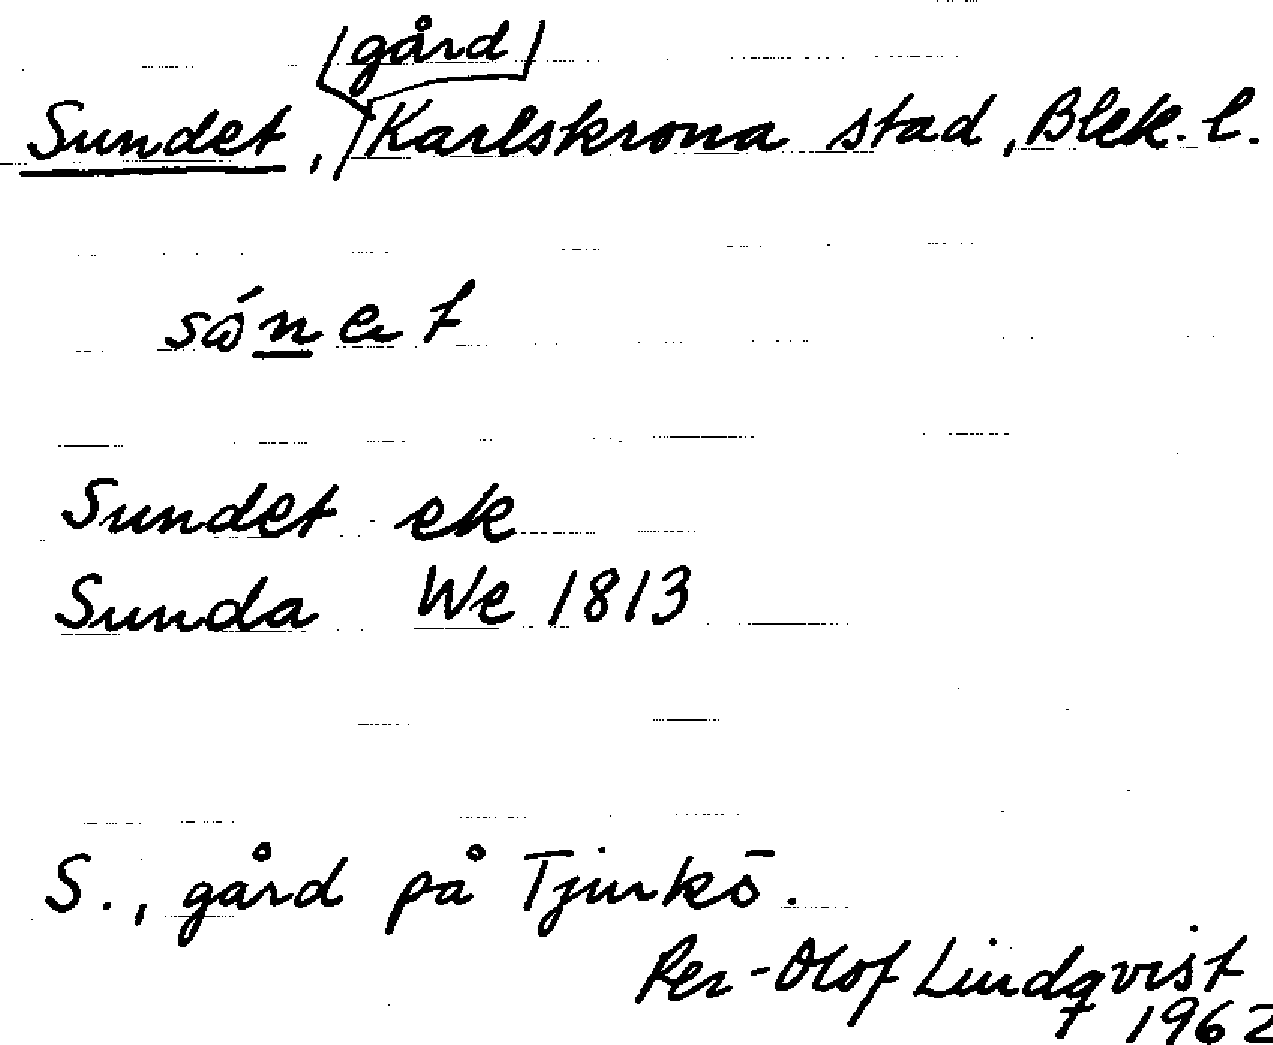 Sundet, gård Karlskrona stad, Blek. l.
Sundet ek
Sunda We 1813
S., gård på Tjurkö.
Per-Olof Lindqvist
1962